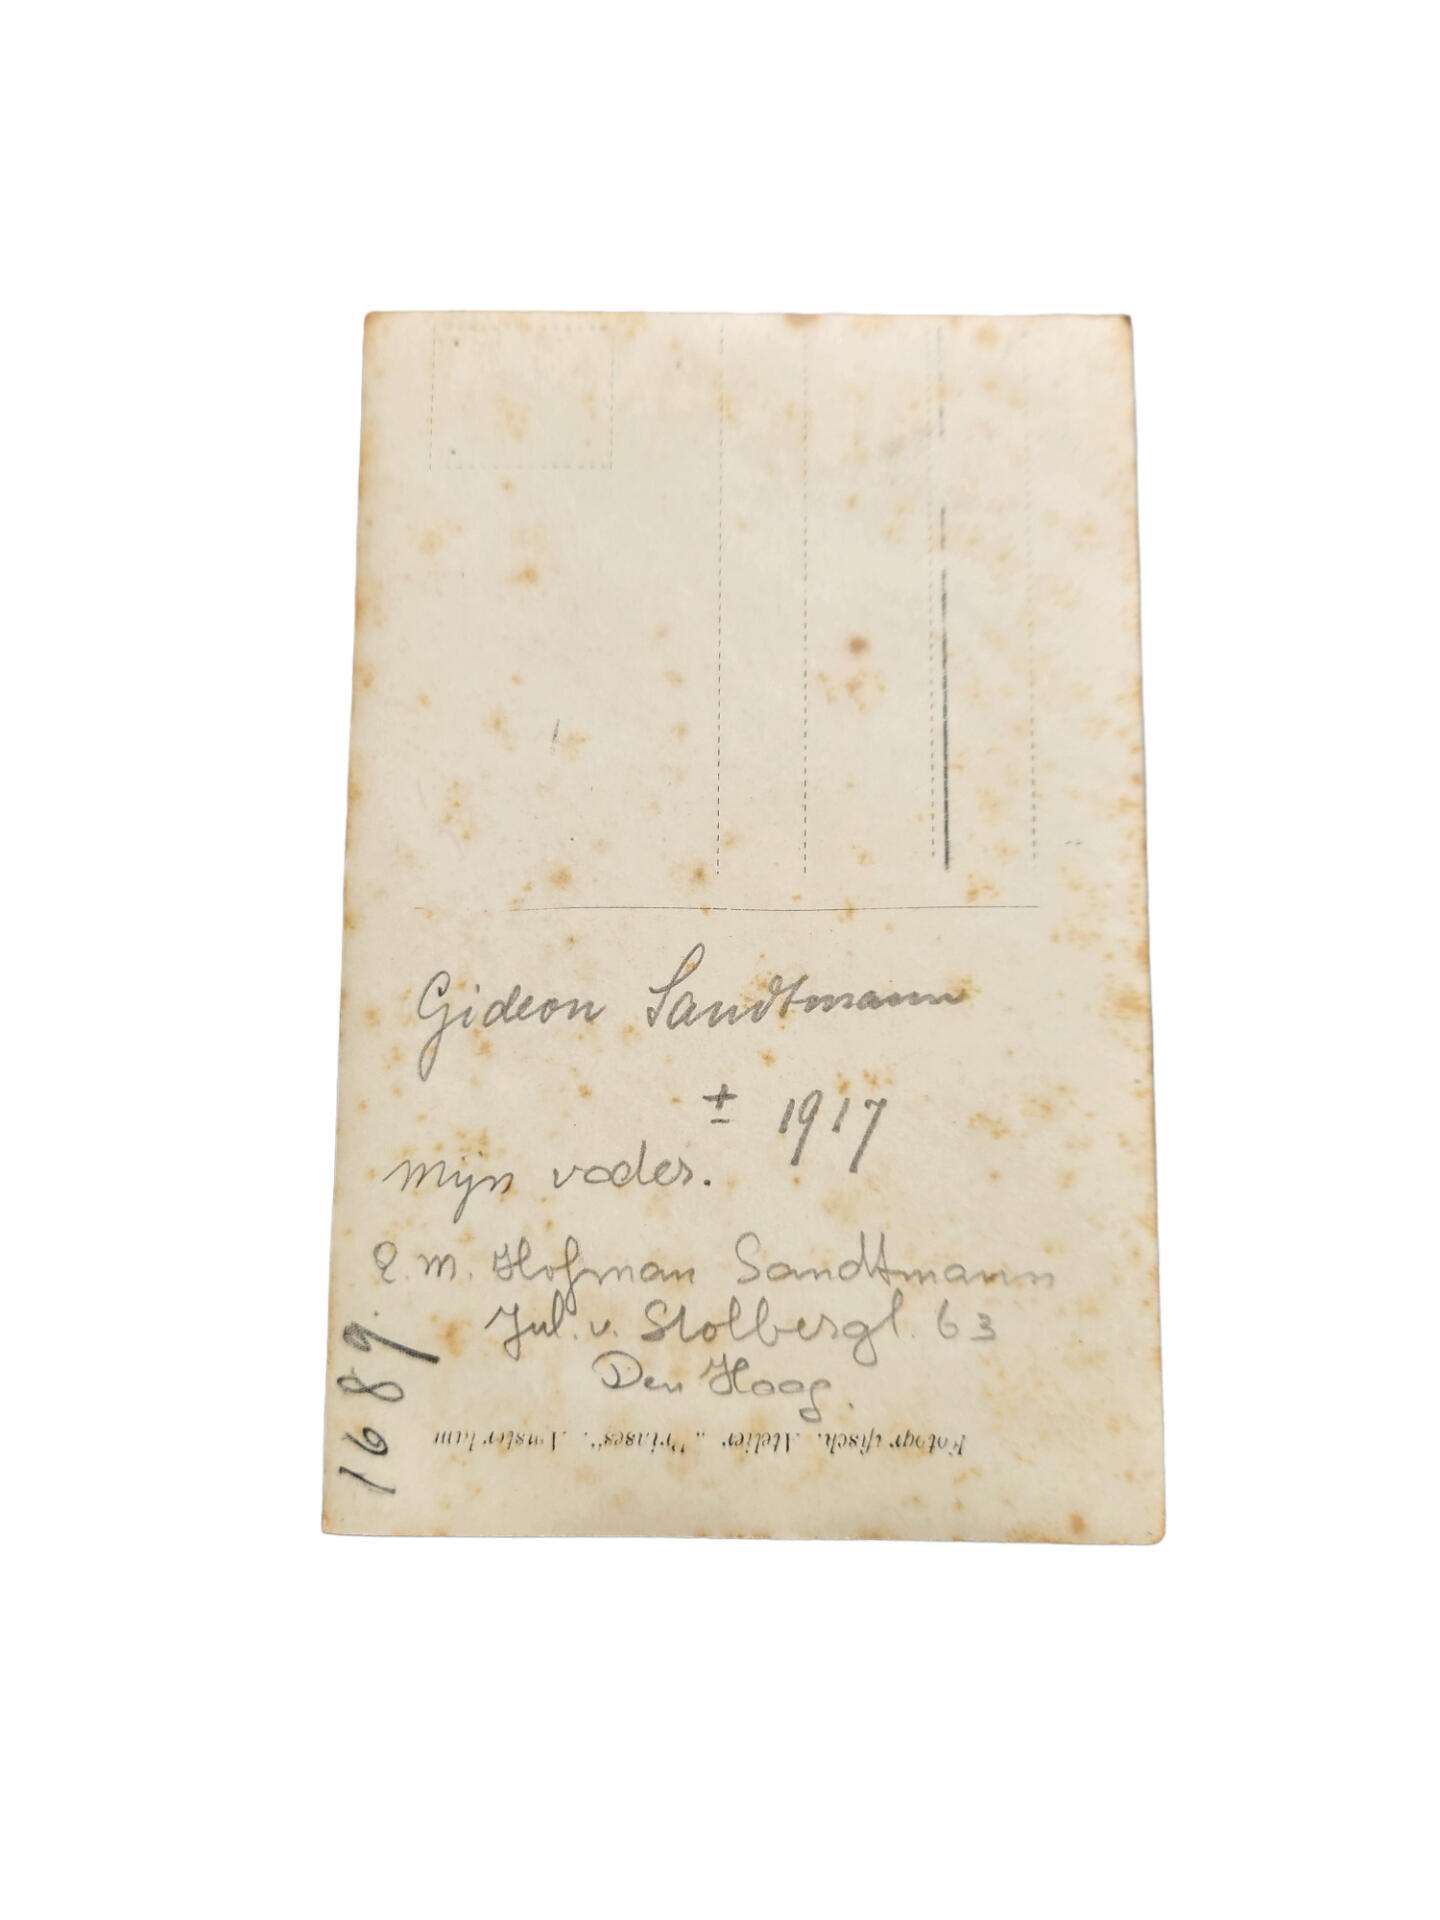 Gideon Sandtmann
± 1917
mijn vader.
E. M. Hofman Sandtmann
Jul. v. Stolbergl. 63
Den Haag.
1689.
Fotografisch. Atelier „Prinses". Amsterdam